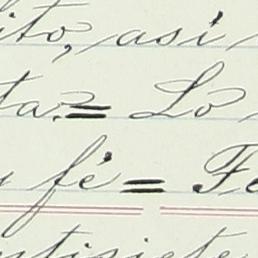 ito, así
ta.= Lo
fé= Fe
ntisiete